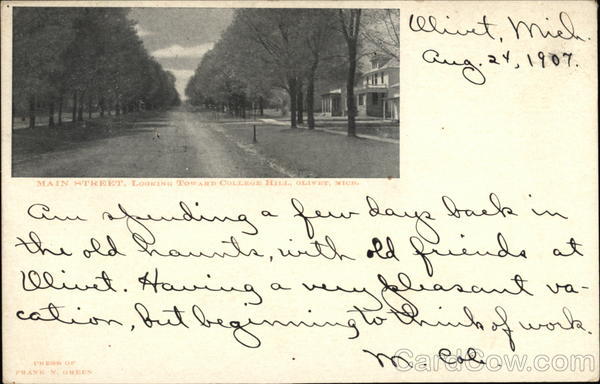 Olivet, Mich.
Aug. 24, 1907.
MAIN STREET, LOOKING TOWARD COLLEGE HILL, OLIVET, MICH.
Am spending a few days back in
the old haunts, with old friends at
Olivet. Having a very pleasant va-
cation, but beginning to think of work.
M.
PRESS OF
FRANK N. GREEN
CardCow.com